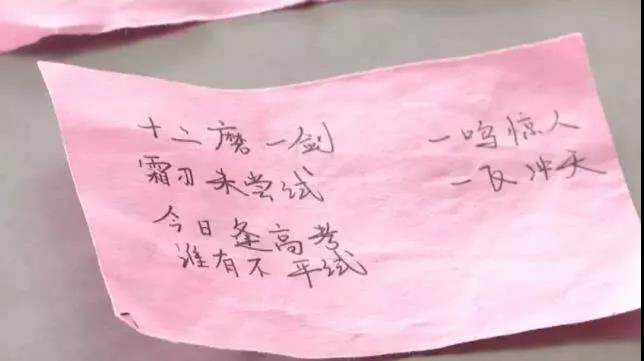 十二磨一剑
霜刃未尝试
今日逢高考
谁有不平试
一鸣惊人
一飞冲天